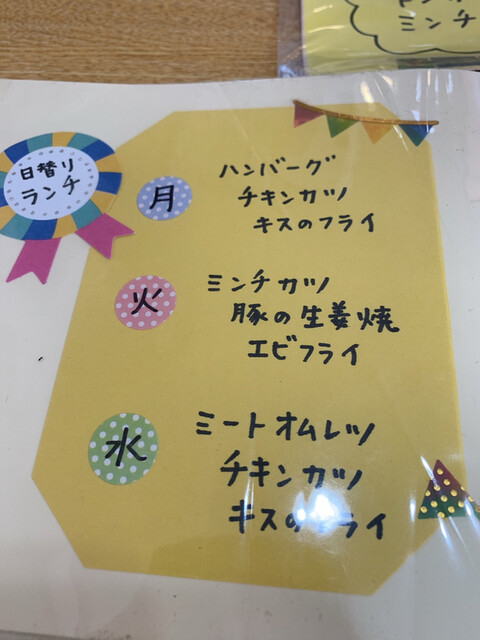 ミンチ
日替り
ランチ
月
ハンバーグ
チキンカツ
キスのフライ
火
ミンチカツ
豚の生姜焼
エビフライ
水
ミートオムレツ
チキンカツ
キスのフライ